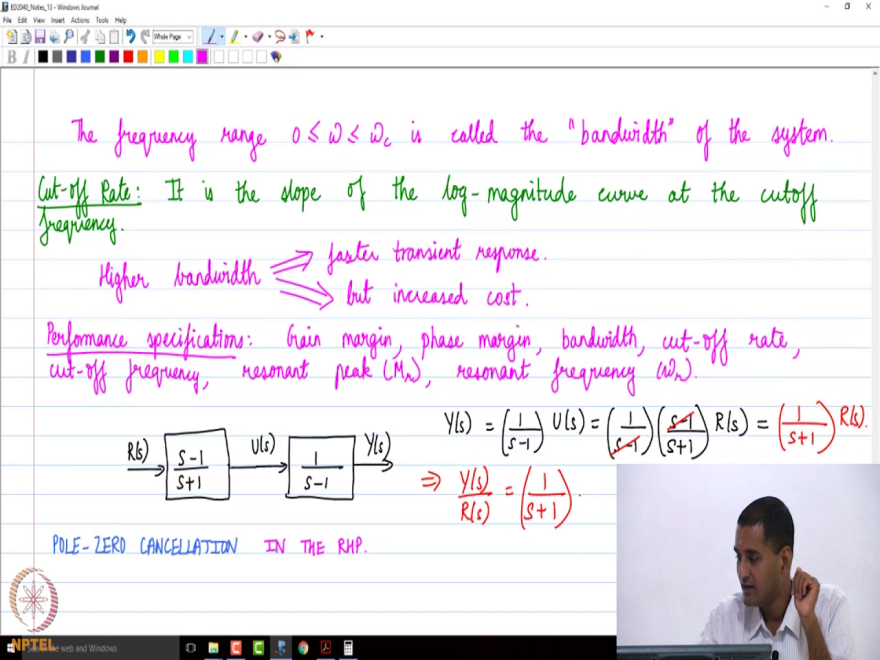 ED2040_Notes_13 - Windows Journal
File Edit View Insert Actions Tools Help
Whole Page
B I
The frequency range 0 ≤ ω ≤ ωc is called the "bandwidth" of the system.
Cut-off Rate: It is the slope of the log-magnitude curve at the cutoff
frequency.
Higher bandwidth ⇒ faster transient response.
⇒ but increased cost.
Performance specifications: Gain margin, phase margin, bandwidth, cut-off rate,
cut-off frequency, resonant peak (Mr), resonant frequency (ωr).
R(s) → [(s-1)/(s+1)] U(s) → [1/(s-1)] Y(s) →
Y(s) = (1/(s-1)) U(s) = (1/(s-1)) ((s-1)/(s+1)) R(s) = (1/(s+1)) R(s).
⇒ Y(s)/R(s) = (1/(s+1)).
POLE-ZERO CANCELLATION IN THE RHP.
NPTEL
the web and Windows